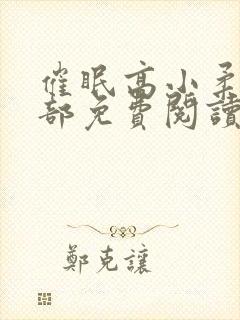 催眠高小柔
部免費閱讀
鄭克讓